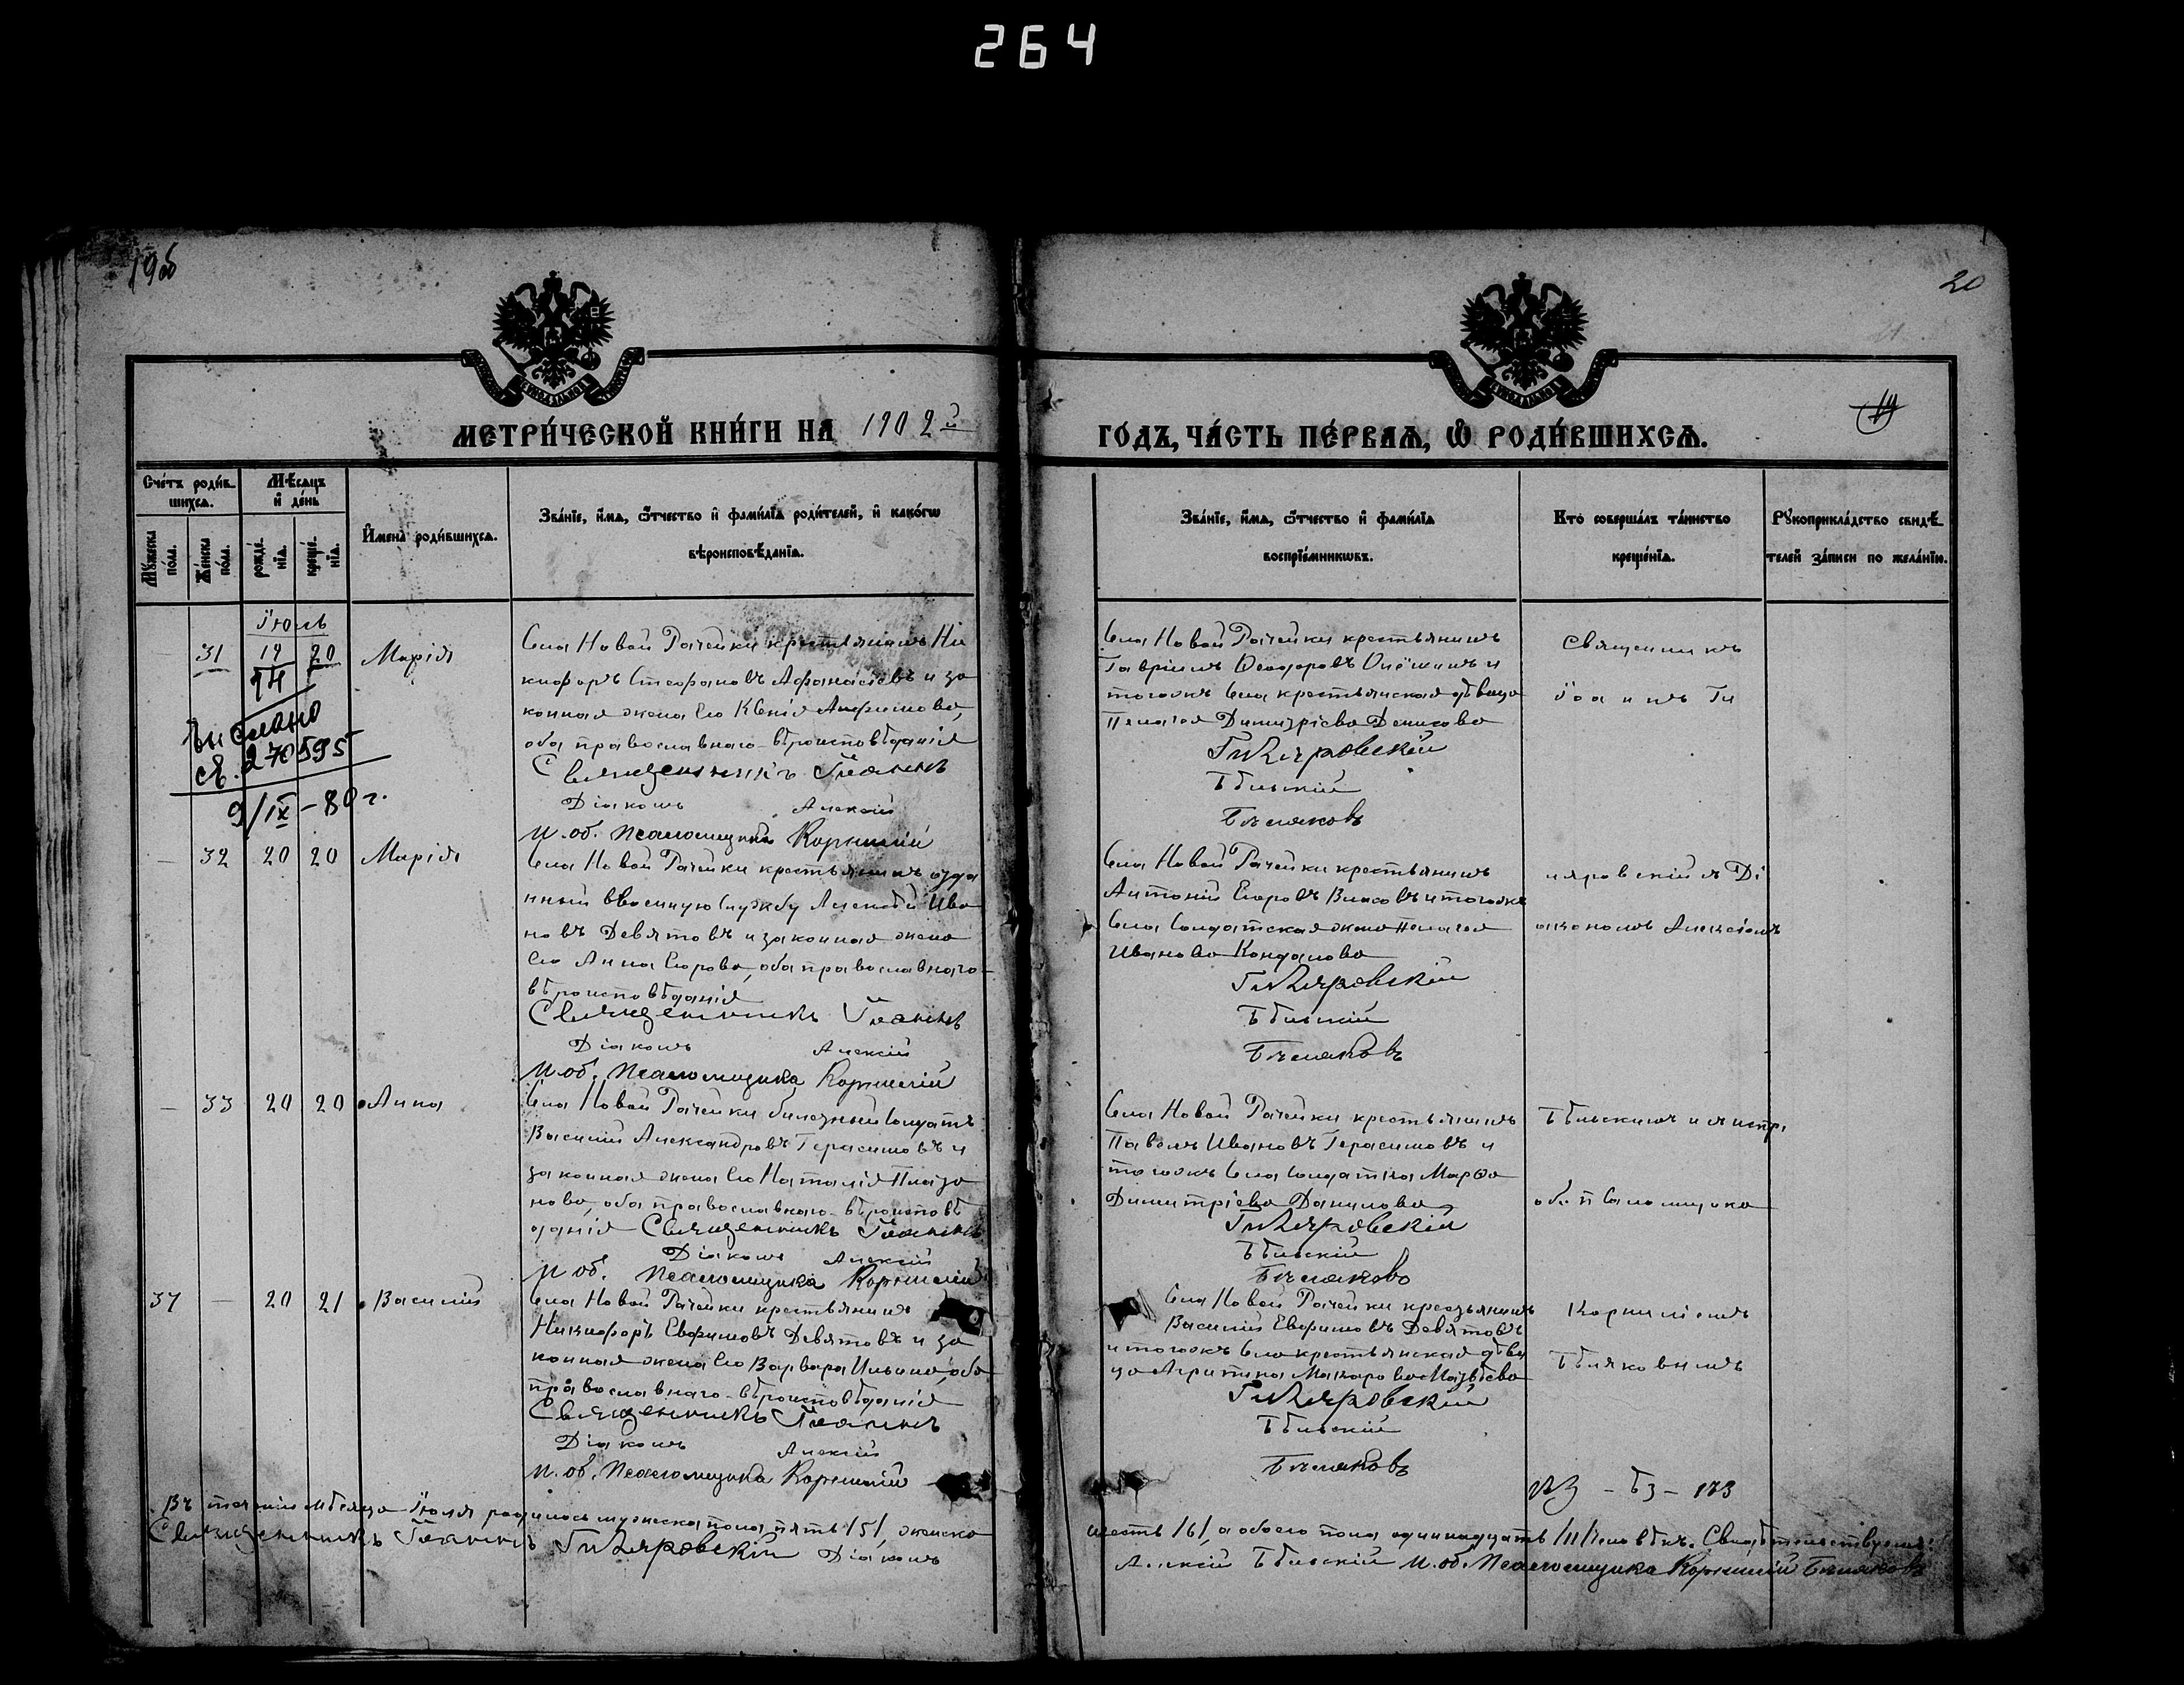 264
19об
20
19
МЕТРИ́ЧЕСКОЙ КНИ́ГИ НА 1902й
ГО́ДЪ, ЧА́СТЬ ПЕ́РВАѦ, Ѡ҆ РОДИ́ВШИХСѦ.
Сче́тъ роди́вшихсѧ.
Мꙋ́жеска по́ла.
Же́нска по́ла.
Мѣ́сѧцъ и҆ де́нь
рожде́нїѧ.
креще́нїѧ.
И҆мена̀ роди́вшихсѧ.
Зва́нїе, и҆́мѧ, ѻ҆́тчество и҆ фами́лїѧ роди́телей, и҆ како́гѡ
вѣроисповѣ́данїѧ.
Зва́нїе, и҆́мѧ, ѻ҆́тчество и҆ фами́лїѧ
воспрїе́мникѡвъ.
Кто̀ соверша́лъ та́инство
креще́нїѧ.
Рꙋкоприкла́дство свидѣ́-
телей за́писи по жела́нїю.
Іюль
31 19 20 Марія
Села Новой Рачейки крестьянинъ Ни
кифоръ Стефановъ Афанасіевъ и за
конная жена его Ксенія Анфимова,
оба православнаго вѣроисповѣданія
Священникъ Іоаннъ
Діаконъ Алексій
И. об. Псаломщика Корнилій
Села Новой Рачейки крестьянинъ
Гавріилъ Ѳеодоровъ и
тогожъ села крестьянская дѣвица
Пелагея Димитріева Денисова
Гиляровскій
Бѣльскій
Бѣляковъ
Священникъ
Іоаннъ Ги
74
Выслано
св. 270595
9/IX - 80 г.
32 20 20 Марія
Села Новой Рачейки крестьянинъ отда
нный в военную службу Алексѣй Ива
новъ Девятовъ и законная жена
его Анна Егорова, оба православнаго
вѣроисповѣданія
Священникъ Іоаннъ
Діаконъ Алексій
И. об. Псаломщика Корнилій
Села Новой Рачейки крестьянинъ
Антоній Егоровъ Власовъ и тогожъ
села солдатская жена Пелагея
Иванова Кондалова
Гиляровскій
Бѣльскій
Бѣляковъ
ляровскій съ Ді
акономъ Алексіемъ
33 20 20 Анна
Села Новой Рачейки билетный солдатъ
Василій Александровъ Герасимовъ и
законная жена его Наталія Плато
нова, оба православнаго вѣроисповѣ
данія Священникъ Іоаннъ
Діаконъ Алексій
И. об. Псаломщика Корнилій
Села Новой Рачейки крестьянинъ
Павелъ Ивановъ Герасимовъ и
тогожъ села солдатка Марѳа
Димитріева Данилова
Гиляровскій
Бѣльскій
Бѣляковъ
Бѣльскимъ и испр.
об. псаломщика
37 20 21 Василій
Села Новой Рачейки крестьянинъ
Никифоръ Евфимовъ Девятовъ и за
конная жена его Варвара Ильина, оба
православнаго вѣроисповѣданія
Священникъ Іоаннъ
Діаконъ Алексій
И. об. Псаломщика Корнилій
Села Новой Рачейки крестьянинъ
Василій Евфимовъ Девятовъ
и тогожъ села крестьянская дѣви
ца Агриппина Макарова Матвѣева
Гиляровскій
Бѣльскій
Бѣляковъ
Корниліемъ
Бѣляковымъ
Въ теченіи мѣсяца Іюля родилось мужеска пола пять /5/, женска
шесть /6/, а обоего пола одиннадцать /11/ человѣкъ. Свидѣтельствуемъ:
Священникъ Іоаннъ Гиляровскій Діаконъ
Алексій Бѣльскій И. об. Псаломщика Корнилій Бѣляковъ